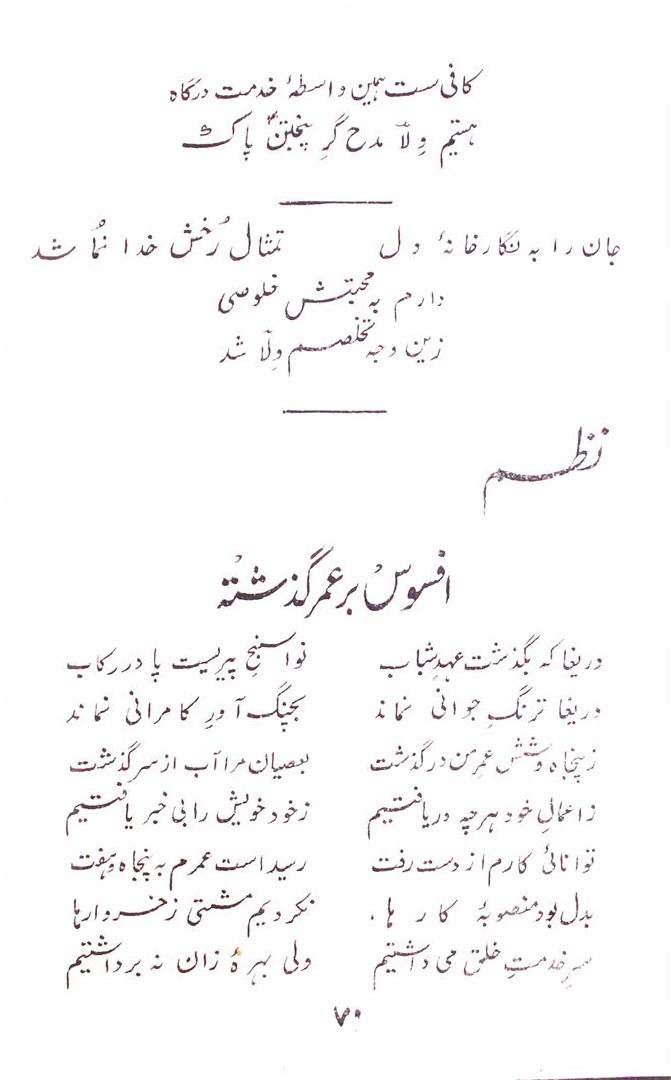 کافی ست ہمین واسطۂ خدمت درگاه
ہستیم وِلاؔ مدح گرِ پنجتنؑ پاک
جان را به نگارخانۂ دل تمثال رُخش خدا نُما شد
دارم به محبتش خلوصی
زین وجه تخلصم ولاؔ شد
نظم
افسوس بر عمر گذشتہ
دریغا که بگذشت عہدِ شباب نواسنجِ پیریست پا در رکاب
دریغا ترنگِ جوانی نماند بجنگ آورِ کامرانی نماند
ز پنجاه و شش عمرِ من درگذشت بعصیان مرا آب از سر گذشت
ز اعمالِ خود ہرچہ دریافتیم ز خود خویش را بی خبر یافتیم
توانائی کارم از دست رفت رسید است عمرم به پنجاه وہفت
بدل بود منصوبۂ کارہا نکردیم مشتی ز خروارہا
سرِ خدمتِ خلق می داشتیم ولی بہرۂ زان نہ برداشتیم
۷۰